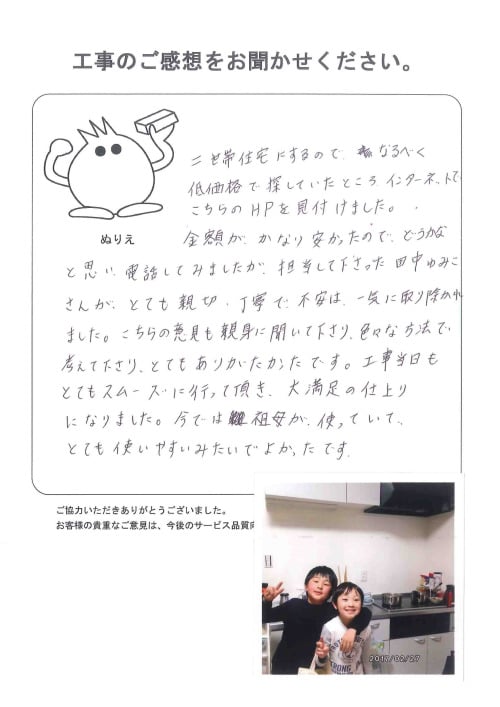 工事のご感想をお聞かせください。
ぬりえ
二世帯住宅にするので、なるべく
低価格で探していたところ インターネットで
こちらのHPを見付けました。
金額が、かなり安かったので、どうかな
と思い、電話してみましたが、担当して下さった田中ゆみこ
さんが、とても親切・丁寧で、不安は、一気に取り除かれ
ました。こちらの意見も親身に聞いて下さり、色々な方法で
考えて下さり、とてもありがたかったです。工事当日も
とてもスムーズに行って頂き、大満足の仕上り
になりました。今では祖母が、使っていて、
とても使いやすいみたいでよかったです。
ご協力いただきありがとうございました。
お客様の貴重なご意見は、今後のサービス品質向
STRONG
2017/02/27